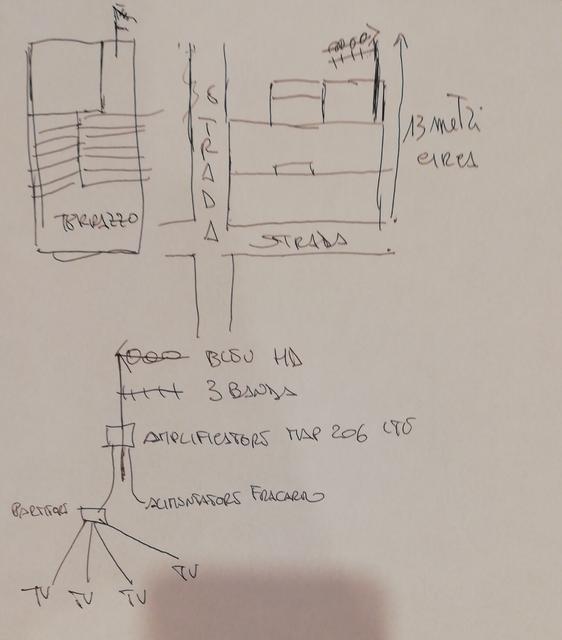 STRADA
13 metri
circa
TERRAZZO
STRADA
BLU HD
3 BANDA
AMPLIFICATORE MAP 206 LTE
ALIMENTATORE FRACARRO
PARTITORE
TV
TV
TV
TV